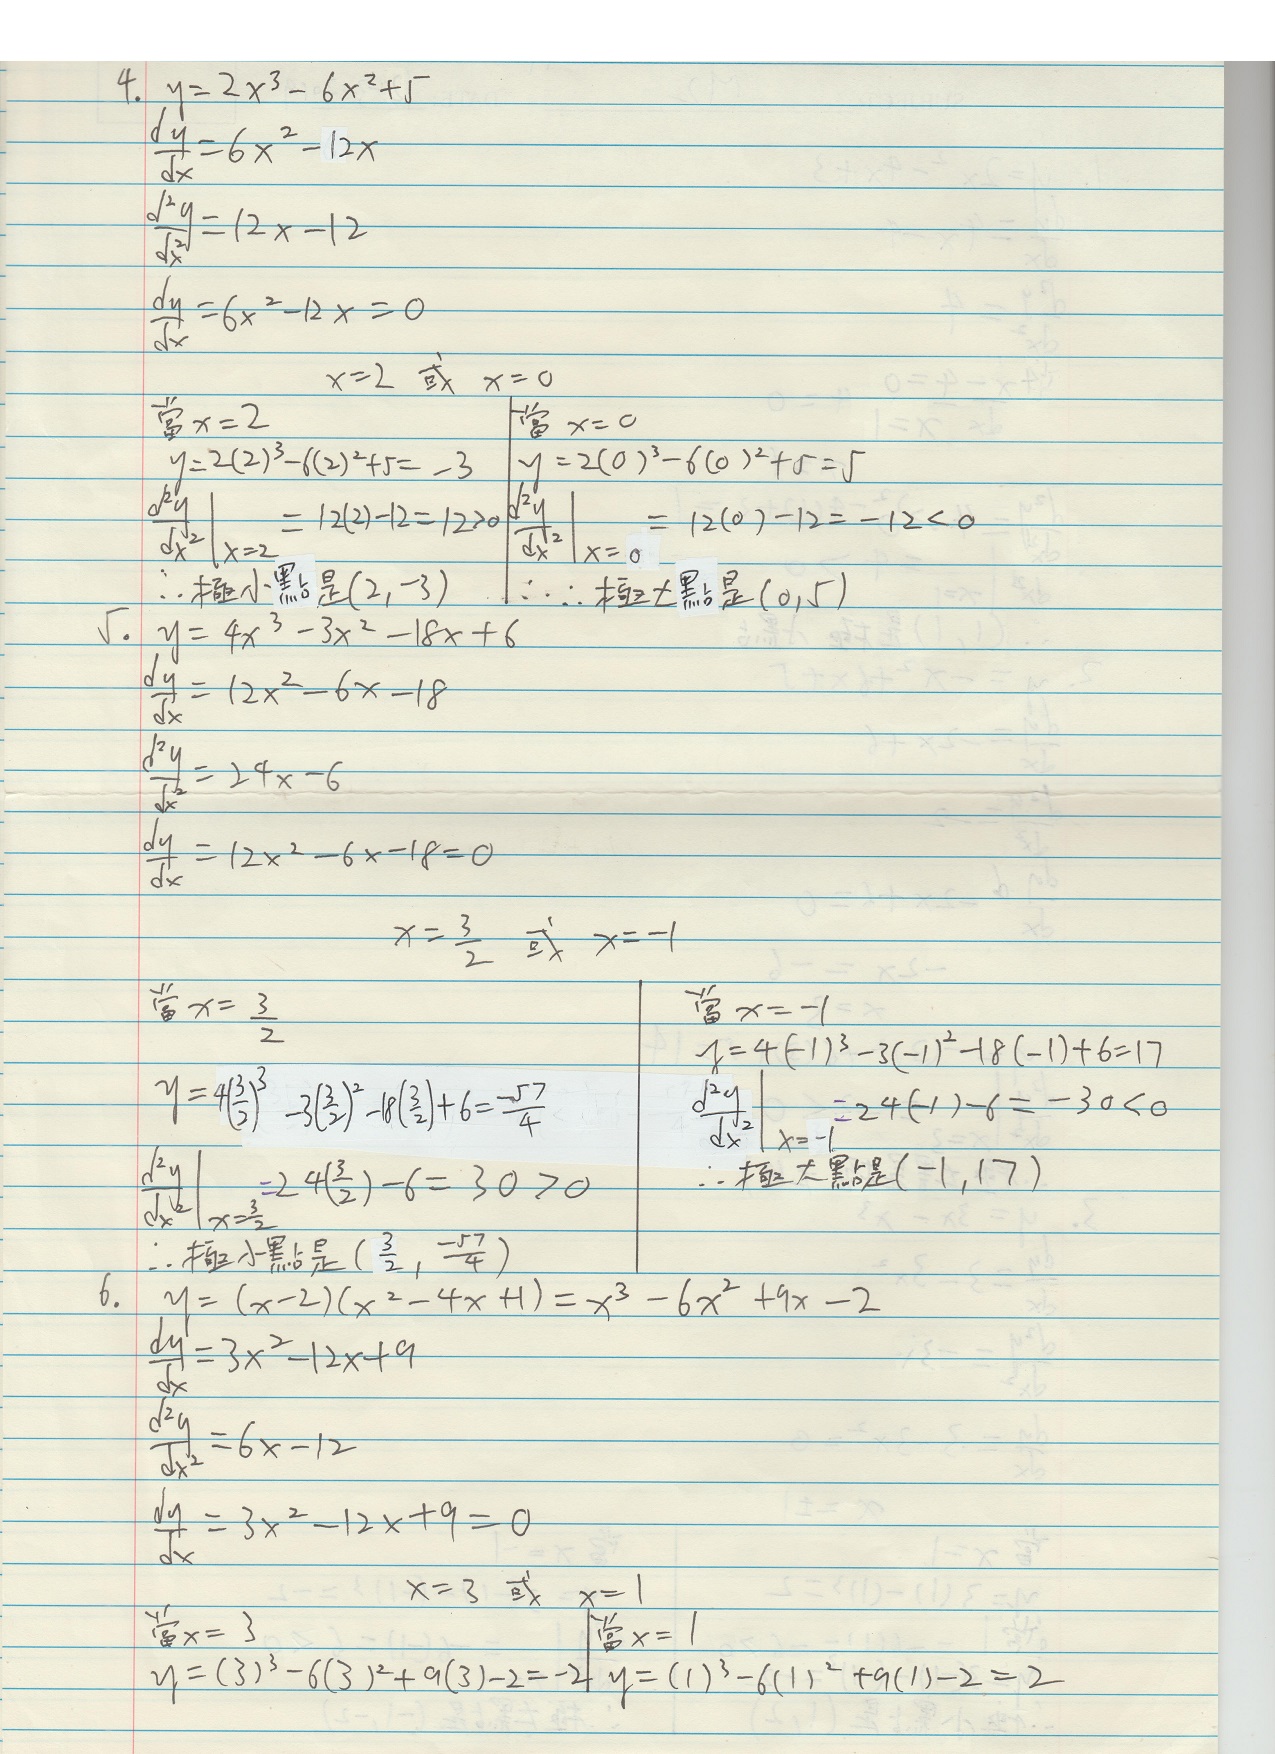 4. y = 2x³ - 6x² + 5
dy/dx = 6x² - 12x
d²y/dx² = 12x - 12
dy/dx = 6x² - 12x = 0
x = 2 或 x = 0
當 x = 2
y = 2(2)³ - 6(2)² + 5 = -3
d²y/dx² |x=2 = 12(2) - 12 = 12 > 0
∴ 極小點是(2, -3)
當 x = 0
y = 2(0)³ - 6(0)² + 5 = 5
d²y/dx² |x=0 = 12(0) - 12 = -12 < 0
∴ 極大點是(0, 5)
5. y = 4x³ - 3x² - 18x + 6
dy/dx = 12x² - 6x - 18
d²y/dx² = 24x - 6
dy/dx = 12x² - 6x - 18 = 0
x = 3/2 或 x = -1
當 x = 3/2
y = 4(3/2)³ - 3(3/2)² - 18(3/2) + 6 = -57/4
d²y/dx² |x=3/2 = 24(3/2) - 6 = 30 > 0
∴ 極小點是(3/2, -57/4)
當 x = -1
y = 4(-1)³ - 3(-1)² - 18(-1) + 6 = 17
d²y/dx² |x=-1 = 24(-1) - 6 = -30 < 0
∴ 極大點是(-1, 17)
6. y = (x-2)(x² - 4x + 1) = x³ - 6x² + 9x - 2
dy/dx = 3x² - 12x + 9
d²y/dx² = 6x - 12
dy/dx = 3x² - 12x + 9 = 0
x = 3 或 x = 1
當 x = 3
y = (3)³ - 6(3)² + 9(3) - 2 = -2
當 x = 1
y = (1)³ - 6(1)² + 9(1) - 2 = 2